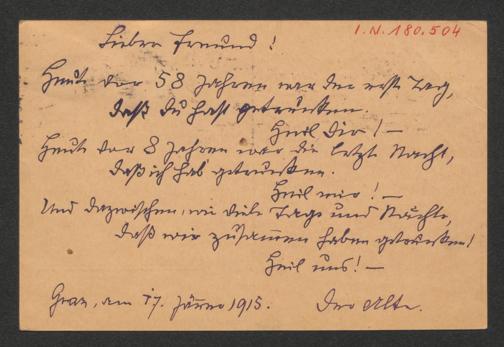 I.N. 180.504
Lieber Freund!
Heute vor 58 Jahren war der erste Tag,
daß du hast getrunken.
Heil Dir! —
Heute vor 8 Jahren war die letzte Nacht,
daß ich hab getrunken.
Heil mir! —
Und dazwischen, wie viele Tage und Nächte,
daß wir zusammen haben getrunken!
Heil uns! —
Graz, am 17. Jänner 1915. Der Alte.